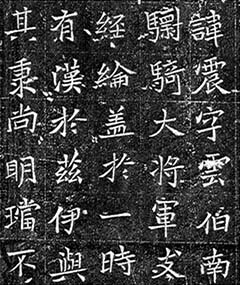 諱震字雲伯南
驃騎大将軍支
經綸盖於一時
有漢於茲伊與
其秉尚明璫不